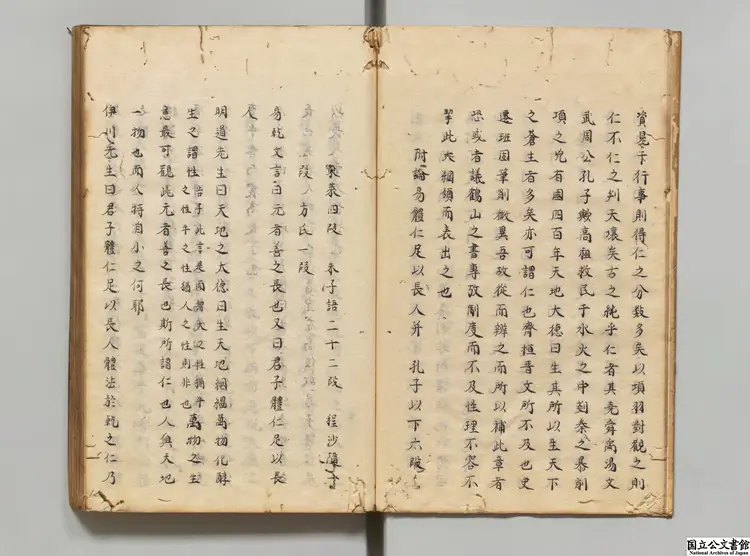 資是子行事則得仁之分數多矣以項羽對觀之則
仁不仁之判天壤矣古之純乎仁者其堯舜禹湯文
武周公孔子歟高祖救民于水火之中剗秦之暴削
項之兇有國四百年天地大德曰生其所以生天下
之蒼生者多矣亦可謂仁也齊桓晉文所不及也史
遷班固筆削微異吾攷從而辨之而所以補此章者
恐或者議鶴山之書專攷制度而不及性理不容不
挈此大綱領而表出之也
附論易體仁足以長人并 孔子以下六段
張蔡四段 朱子語二十二段 程沙隨
段 方氏一段
易乾文言曰元者善之長也又曰君子體仁足以長
人
明道先生曰天地之大德曰生天地絪縕萬物化醇
生之謂性 告子此言是而謂犬之性猶牛之性牛之性猶人之性則非也 萬物之生
意最可觀此元者善之長也斯所謂仁也人與天地
一物也而人特自小之何耶
伊川先生曰君子體仁足以長人體法於乾之仁乃
国立公文書館
National Archives of Japan